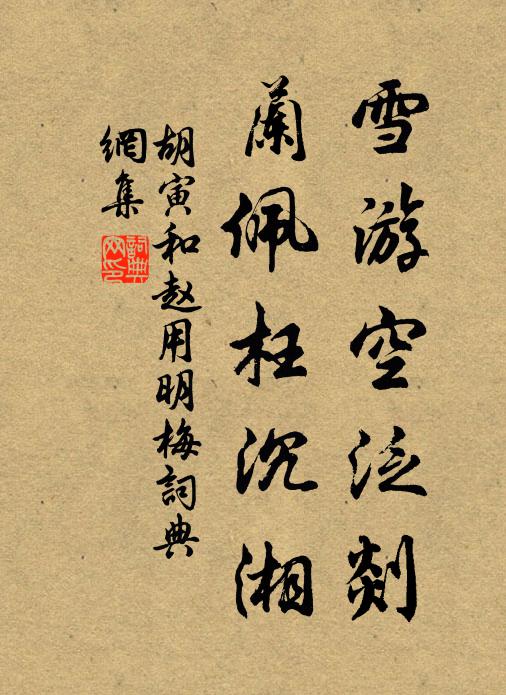 雪游空泛剡
蘭佩枉沉湘
胡寅和赵用明梅詞典
網集
詞典网印